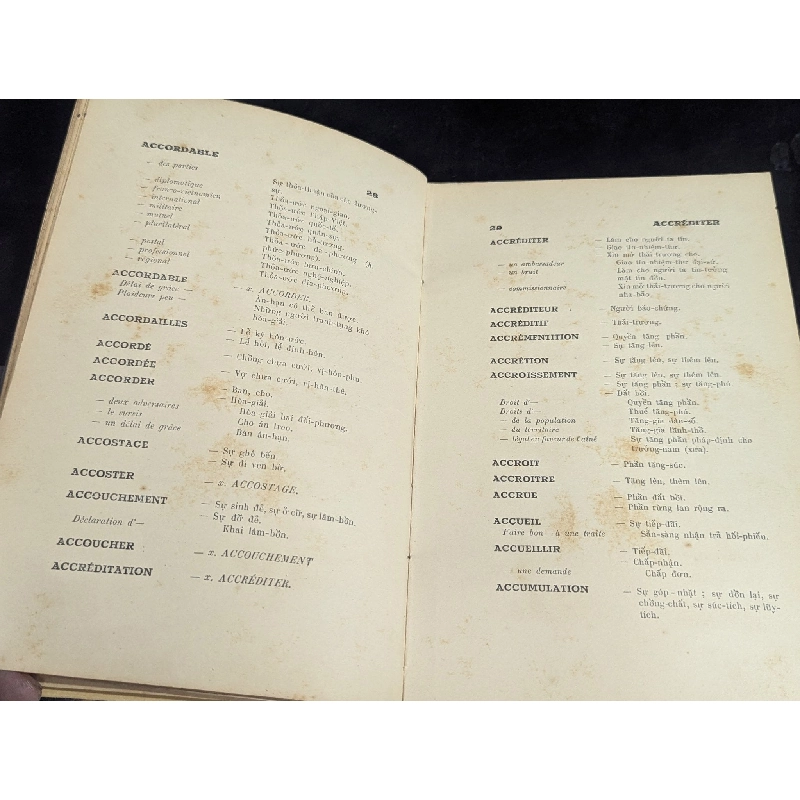 ACCORDABLE
28
— des parties
Sự thỏa-thuận của các đương-
sự.
— diplomatique
Thỏa-ước ngoại-giao.
— franco-vietnamien
Thỏa-ước Pháp Việt.
— international
Thỏa-ước quốc-tế.
— militaire
Thỏa-ước quân-sự.
— mutuel
— plurilatéral
Thỏa-ước đa-phương
phức phương).
— postal
Thỏa-ước bưu-chính.
— professionnel
Thỏa-ước nghề-nghiệp.
— régional
Thỏa-ước địa-phương.
ACCORDABLE
— x. ACCORDER.
Délai de grâce —
Ân-hạn có thể ban được.
Plaideurs peu —
Những người tranh tụng khó
hòa-giải.
ACCORDAILLES
— Lễ ký hôn ước.
— Lễ hỏi, lễ định-hôn.
ACCORDÉ
— Chồng chưa cưới, vị-hôn-phu
ACCORDÉE
— Vợ chưa cưới, vị-hôn-thê.
ACCORDER
— Ban, cho.
— Hòa-giải.
— deux adversaires
Hòa giải hai đối-phương.
— le sursis
Cho án treo.
— un délai de grâce
Ban ân-hạn.
ACCOSTAGE
— Sự ghé bến
— Sự đi ven bờ.
ACCOSTER
— x. ACCOSTAGE.
ACCOUCHEMENT
— Sự sinh đẻ, sự ở cữ, sự lâm-bồn.
— Sự đỡ đẻ.
Déclaration d'—
Khai lâm-bồn.
ACCOUCHER
— x. ACCOUCHEMENT
ACCRÉDITATION
— x. ACCRÉDITER.
29
ACCRÉDITER
ACCRÉDITER
— Làm cho người ta tin.
Giao ủy-nhiệm-thư.
Xin mở thải trương cho.
— un ambassadeur
Giao ủy nhiệm-thư đại-sứ.
— un bruit
Làm cho người ta tin-tưởng
một tin đồn.
— commissionnaire
Xin mở thải-trương cho người
nha-bảo.
ACCRÉDITEUR
Người bảo-chứng.
ACCRÉDITIF
— Thải-trương.
ACCRÉMENTITION
— Quyền tăng phần.
— Sự tăng lên.
ACCRÉTION
— Sự tăng lên, sự thêm lên.
ACCROISSEMENT
— Sự tăng lên, sự thêm lên.
— Sự tăng phần ; sự tăng-phú
— Đất bồi.
Droit d'—
Quyền tăng phần.
Droits d'—
Thuế tăng-phú.
— de la population
Tăng-gia dân-số.
— du territoire
Tăng-gia lãnh-thổ.
— légal en faveur de l'aîné
Sự tăng phần pháp-định cho
trưởng-nam (xưa).
ACCROIT
— Phần tăng-súc.
ACCROITRE
— Tăng lên, thêm lên.
ACCRUE
— Phần đất bồi.
— Phần rừng lan rộng ra.
ACCUEIL
— Sự tiếp-đãi.
Faire bon — à une traite
Sẵn-sàng nhận trả hối-phiếu.
ACCUEILLIR
— Tiếp-đãi.
Chấp-nhận.
— une demande
Chấp đơn.
ACCUMULATION
— Sự góp-nhặt ; sự dồn lại, sự
chồng-chất, sự súc-tích, sự lũy-
tích.